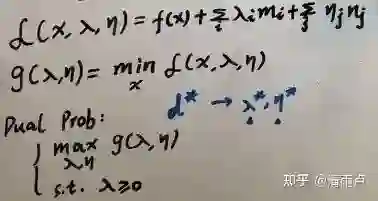 L(x, λ, η) = f(x) + Σᵢ λᵢmᵢ + Σⱼ ηⱼnⱼ
g(λ,η) = min_x L(x, λ, η)
d* → λ*, η*
Dual Prob:
{ max_{λ,η} g(λ,η)
s.t. λ≥0
知乎 @海雨卢